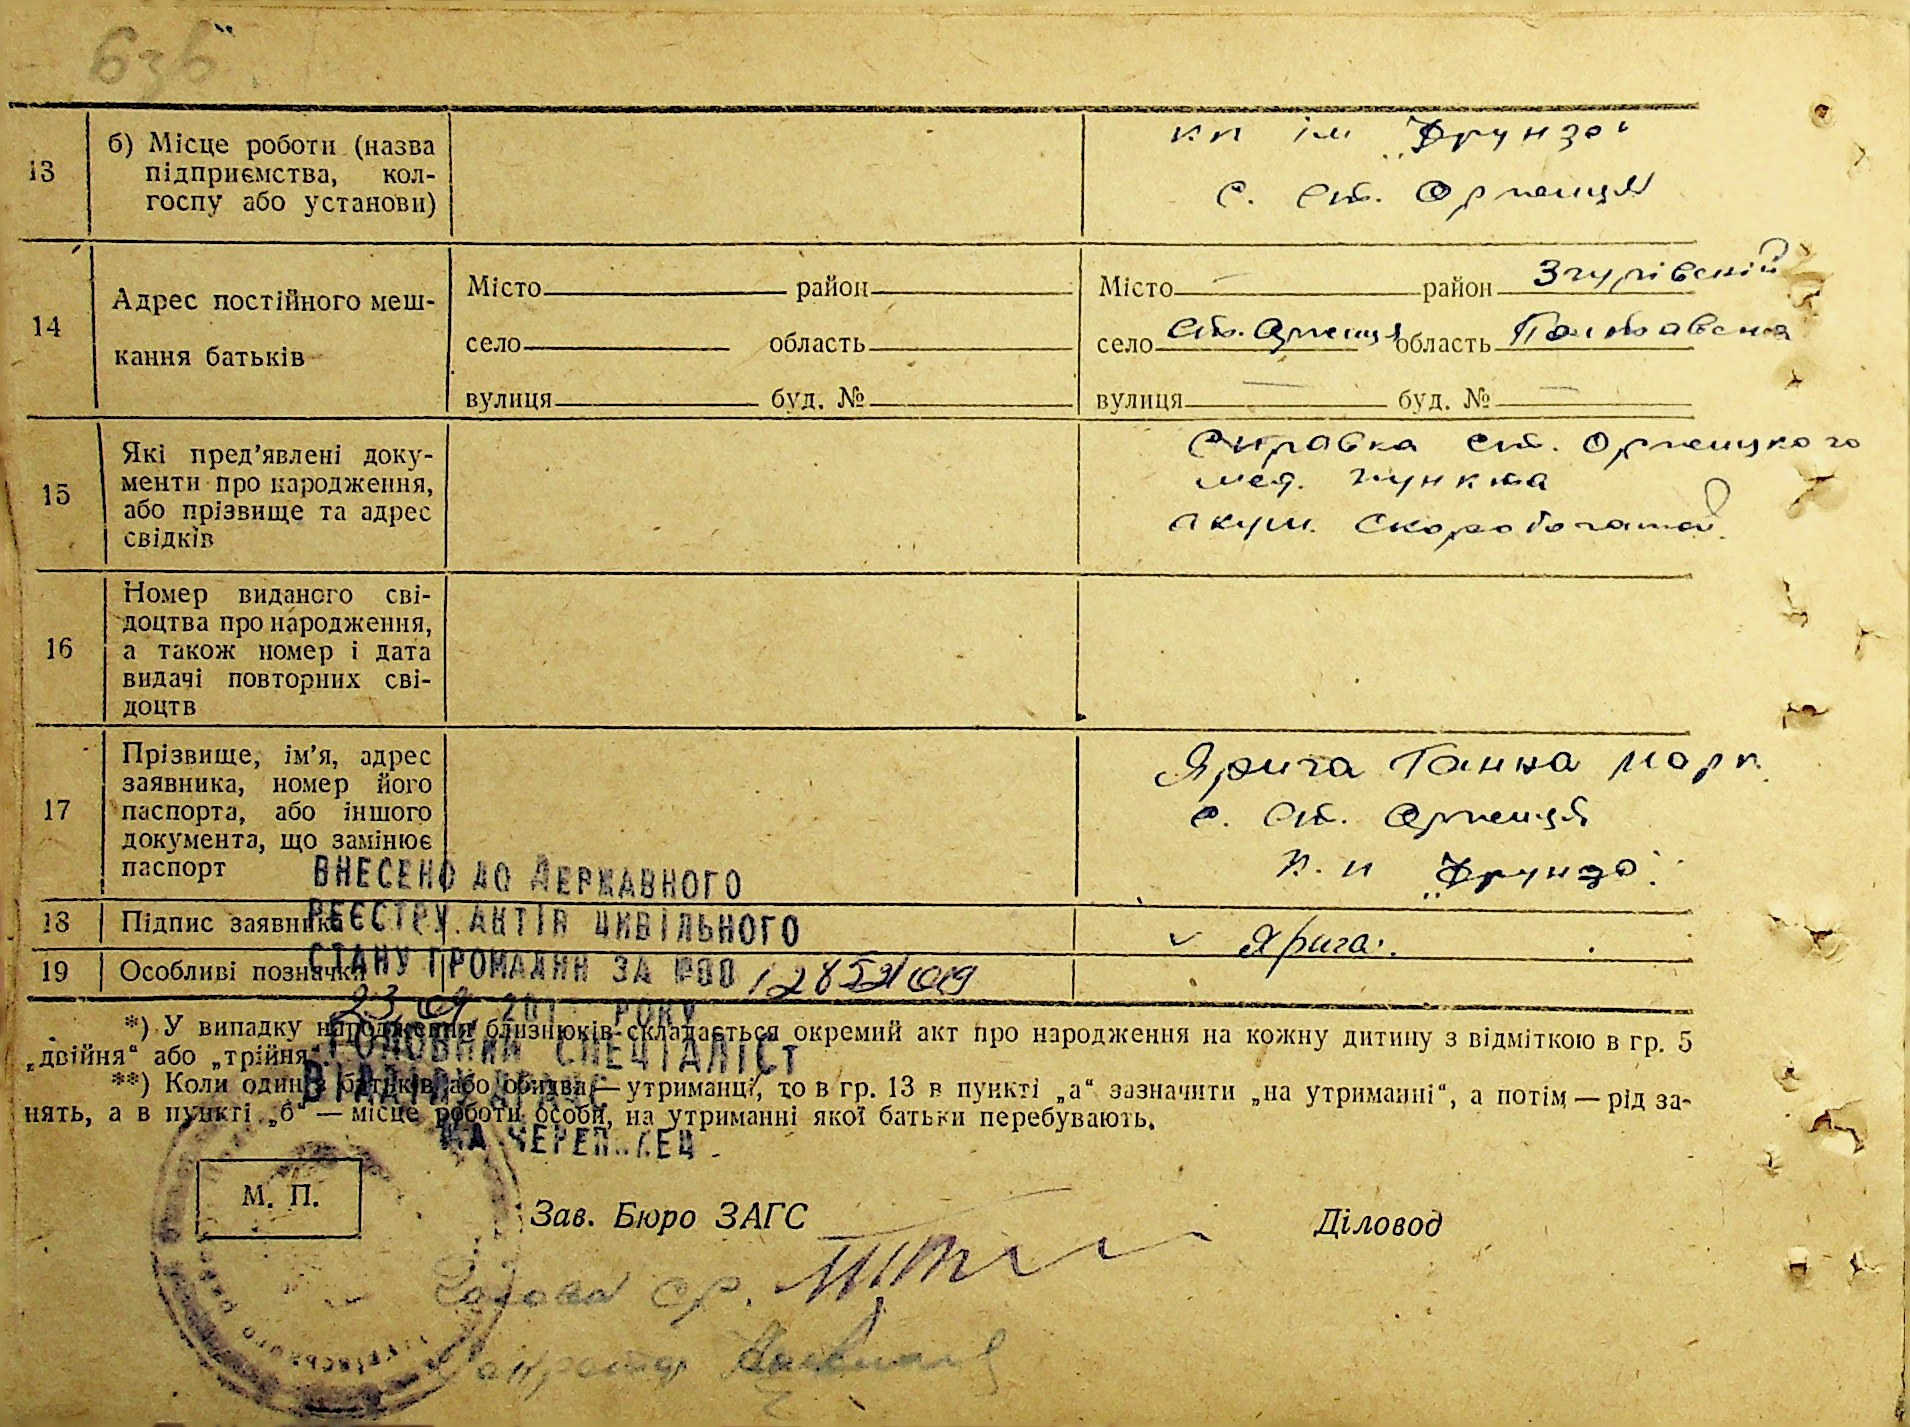 636
13 б) Місце роботи (назва
підприємства, кол-
госпу або установи)
кп ім „Фрунзе"
с. Ст. Оржиця
14 Адрес постійного меш-
кання батьків
Місто район
село область
вулиця буд. №
Місто район Згурівский
село Ст. Оржиця область Полтавска
вулиця буд. №
15 Які пред’явлені доку-
менти про народження,
або прізвище та адрес
свідків
Справка Ст. Оржицкого
мед. пункта
акуш. Скоробогатой
16 Номер виданого сві-
доцтва про народження,
а також номер і дата
видачі повторних сві-
доцтв
17 Прізвище, ім’я, адрес
заявника, номер його
паспорта, або іншого
документа, що замінює
паспорт
Ярига Ганна Марк.
с. Ст. Оржиця
к. п „Фрунзе"
18 Підпис заявника
Ярига.
19 Особливі позначки
ВНЕСЕНО ДО ДЕРЖАВНОГО
РЕЄСТРУ АКТІВ ЦИВІЛЬНОГО
СТАНУ ГРОМАДЯН ЗА №
РОКУ
ГОЛОВНИЙ СПЕЦІАЛІСТ
*) У випадку народження близнюків складається окремий акт про народження на кожну дитину з відміткою в гр. 5
„двійня“ або „трійня“.
**) Коли один з батьків або обидва — утриманці, то в гр. 13 в пункті „а“ зазначити „на утриманні“, а потім — рід за-
нять, а в пункті „б“ — місце роботи особи, на утриманні якої батьки перебувають.
М. П.
Зав. Бюро ЗАГС
Діловод
Голова ср.
Секретар